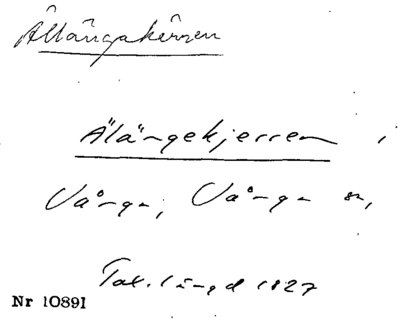 Ällängakärren
Älängekjerren i
Vånga, Vånga sn,
Tax. längd 1827
Nr 10891